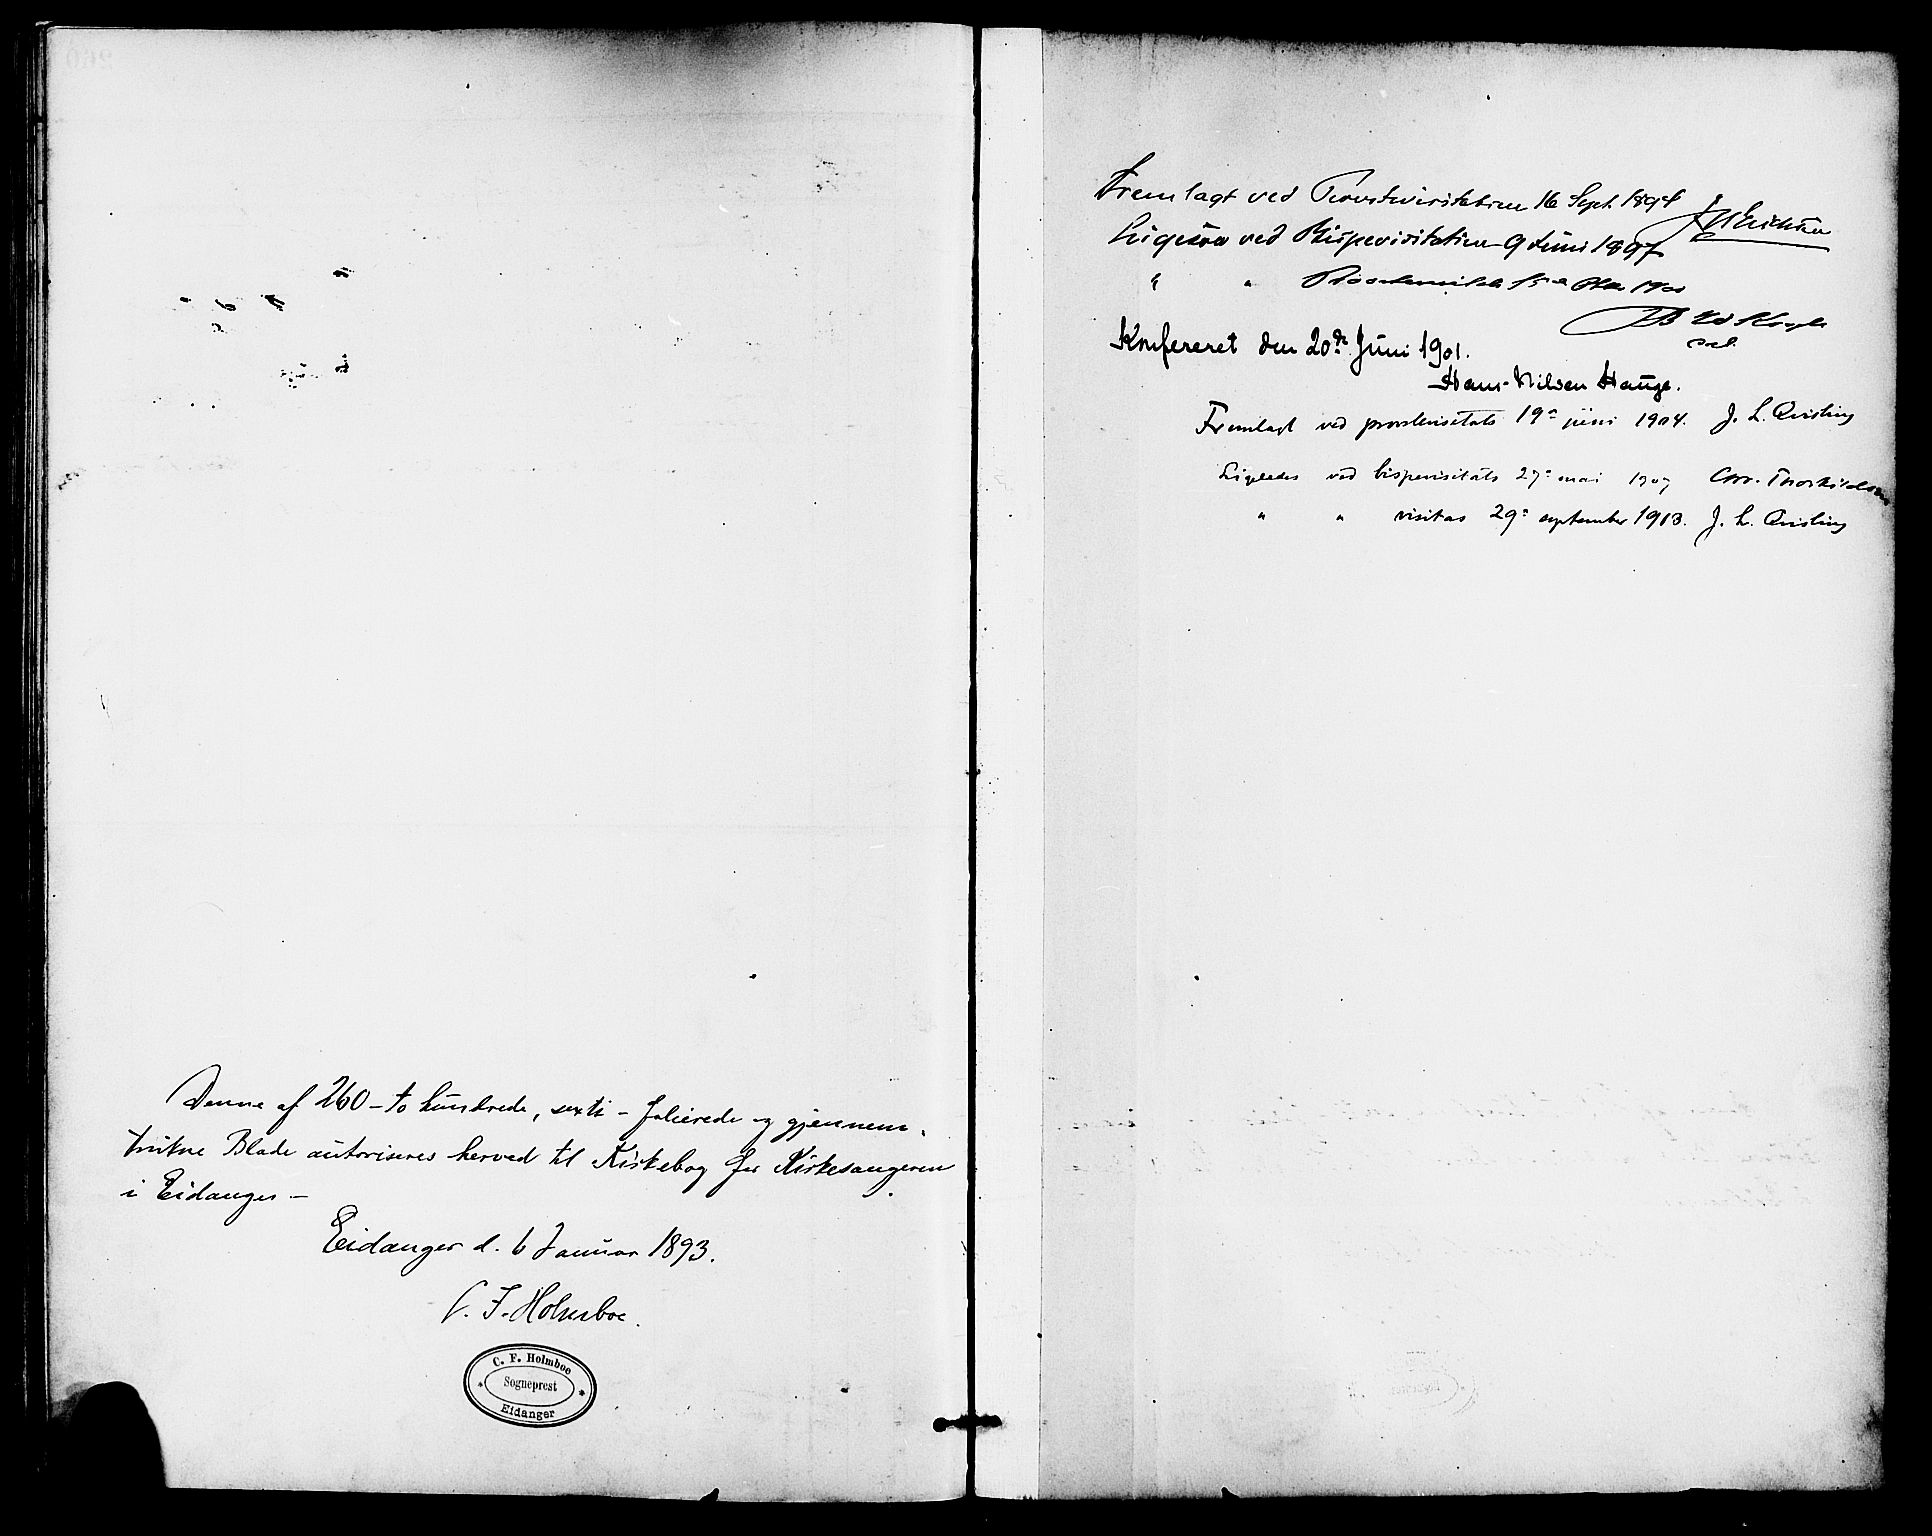 Denne af 260 – to hundrede, sexti – folierede og gjennem-
trukne Blade autoriseres herved til Kirkebog for Kirkesangeren
i Eidanger –
Eidanger d. 6 Januar 1893.
C. F. Holmboe.
C. F. Holmboe
Sogneprest
Eidanger
Fremlagt ved Provstevisitatsen 16 Sept. 1894
Ligesaa ved Bispevisitatsen 9 Juni 1897
" " 1900
Konfereret den 20de Juni 1901.
Hans Nilsen Hauge.
Fremlagt ved provstevisitats 19e juni 1904. J. L. Qvisling
Ligeledes ved bispevisitats 27e mai 1907 Chr. Thorkildsen
" " visitas 29e september 1913. J. L. Qvisling